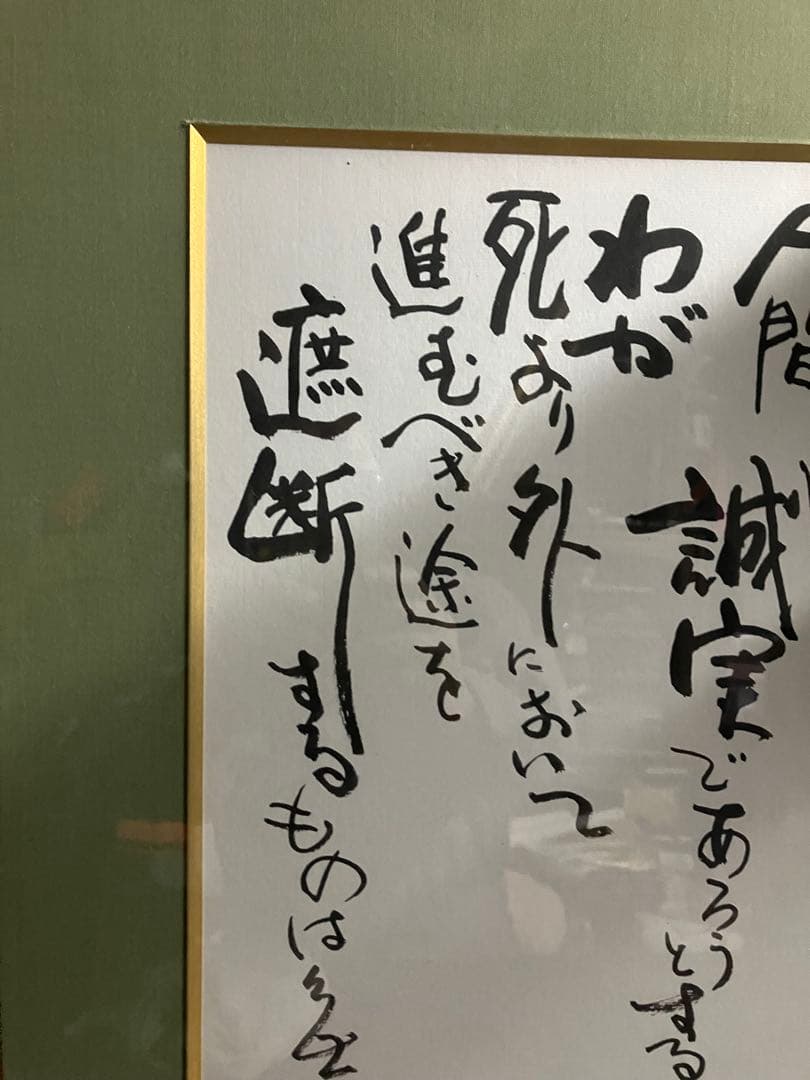 人間
わが誠実であろうとする
死より外において
進むべき途を
遮断するものは